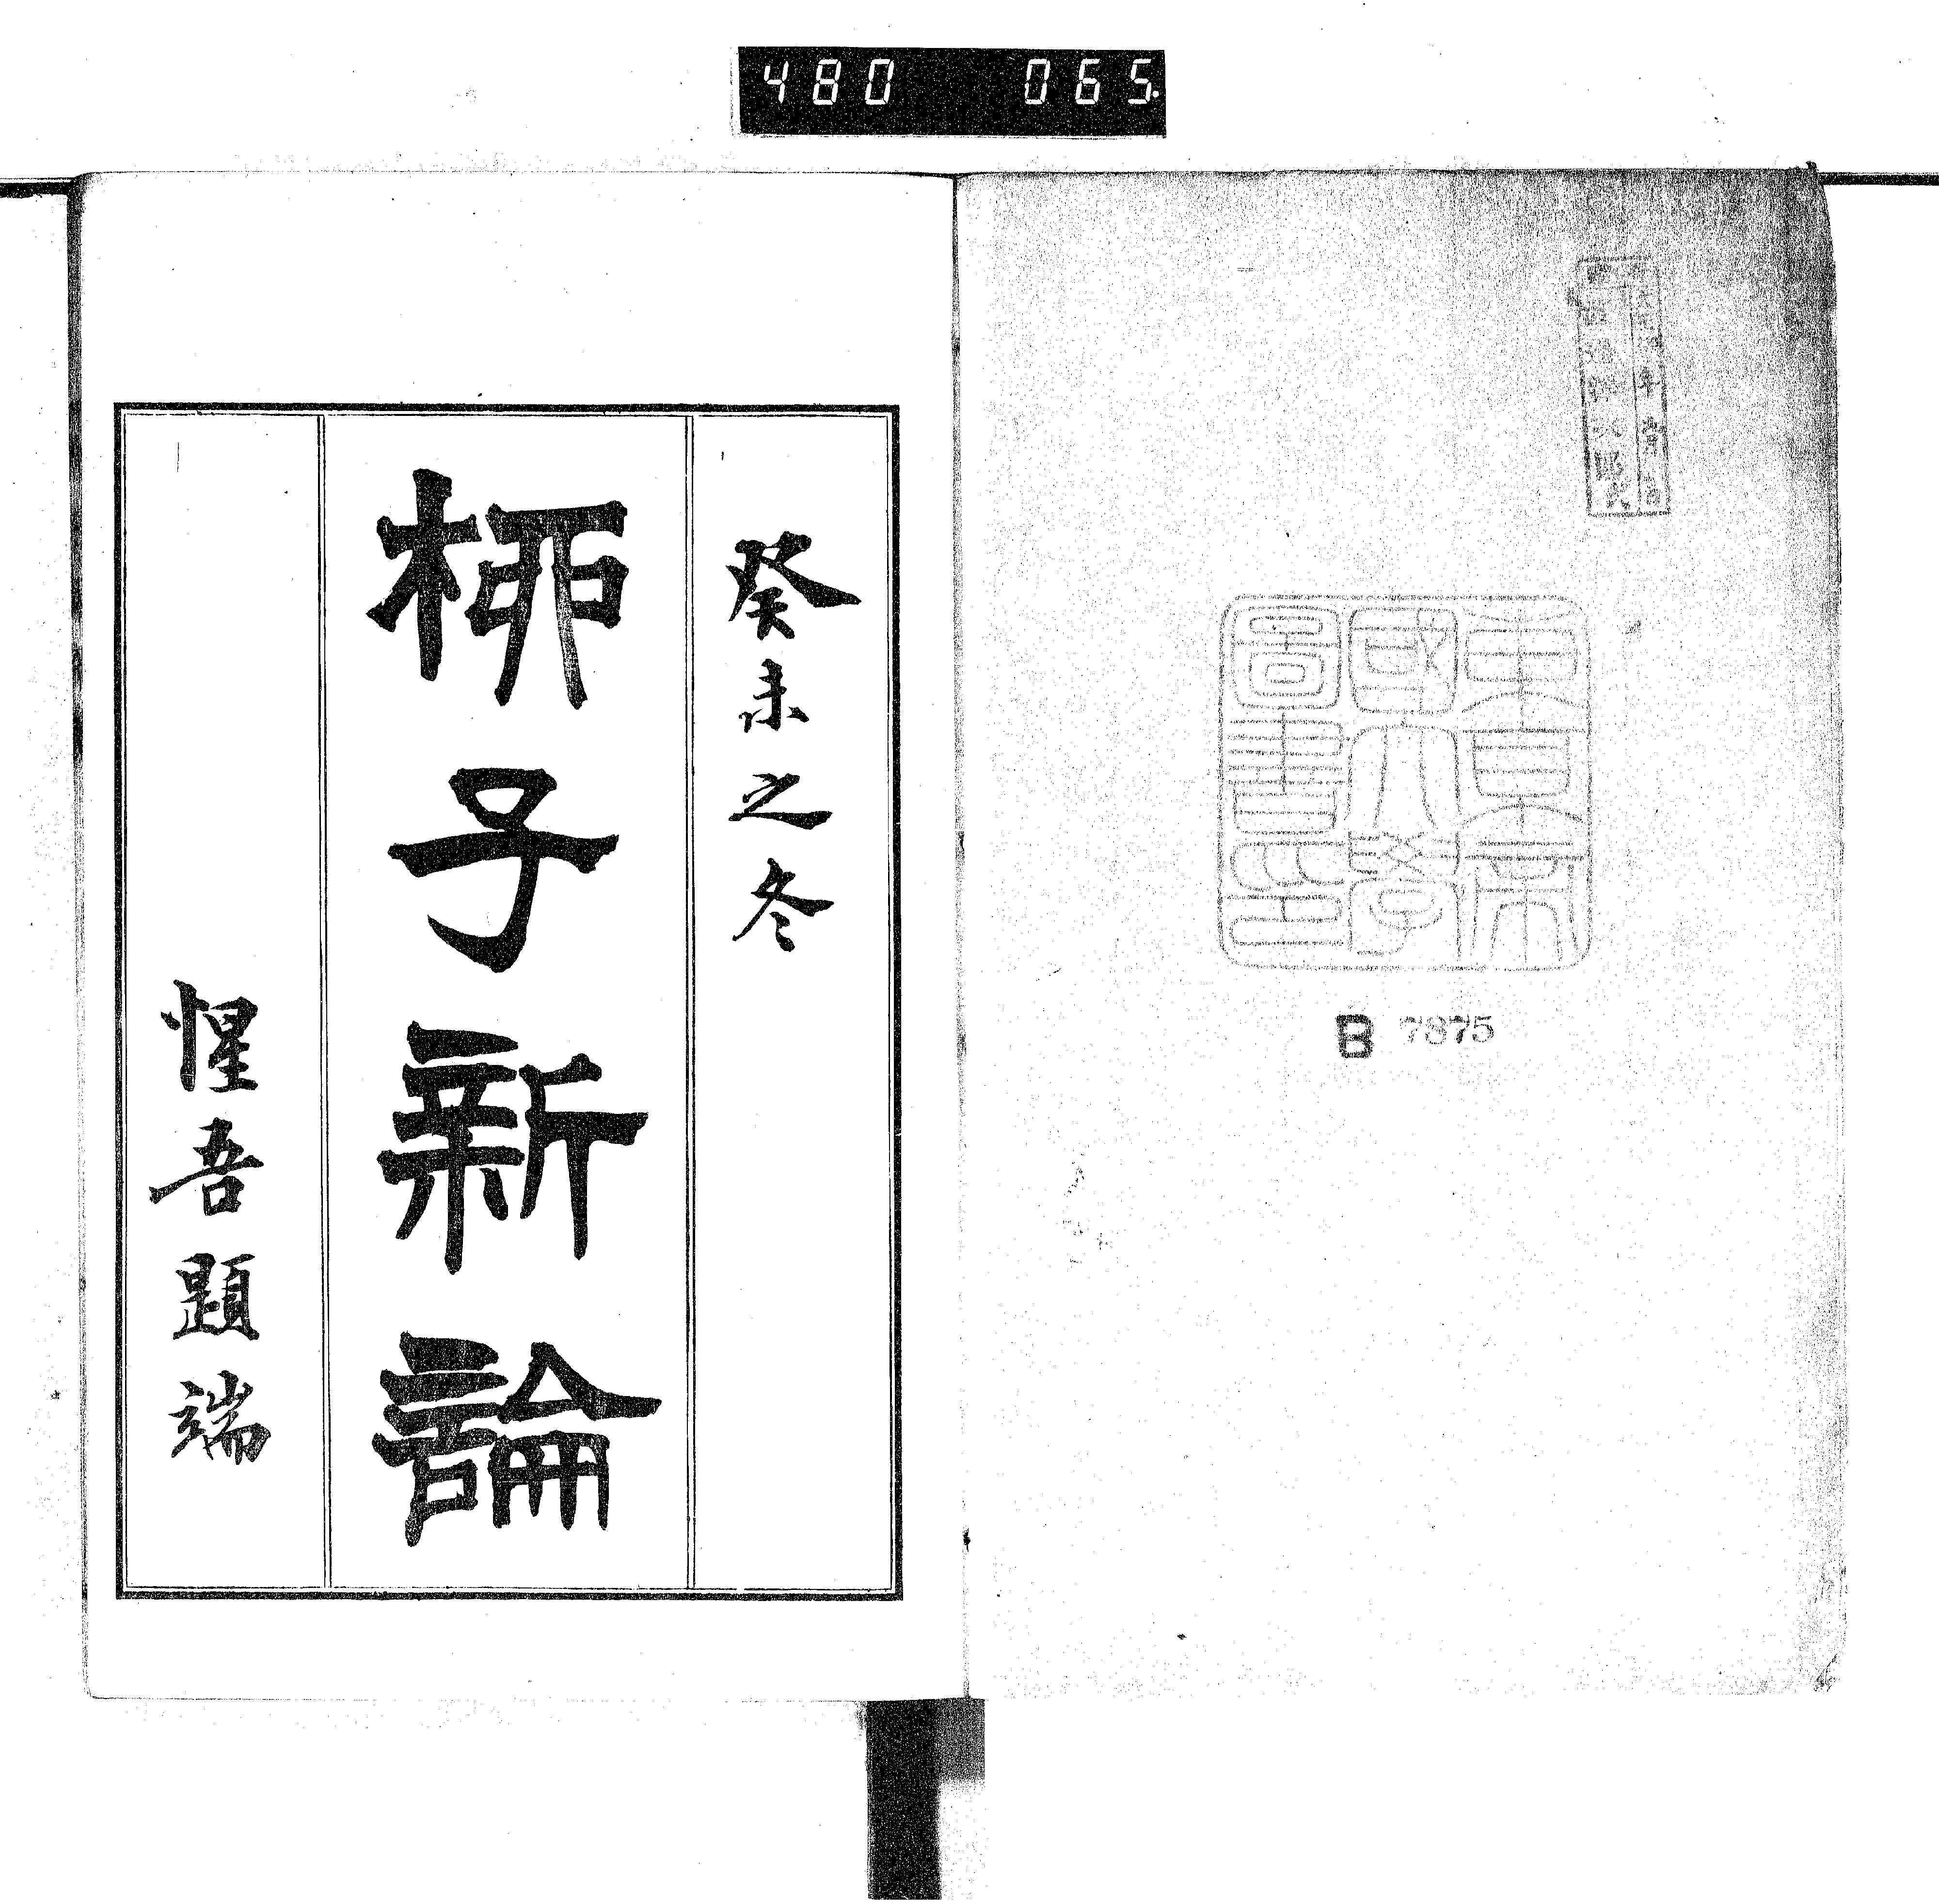 480 065.
東京帝
國大學
圖書印
B 7875
癸未之冬
桺子新論
惺吾題端